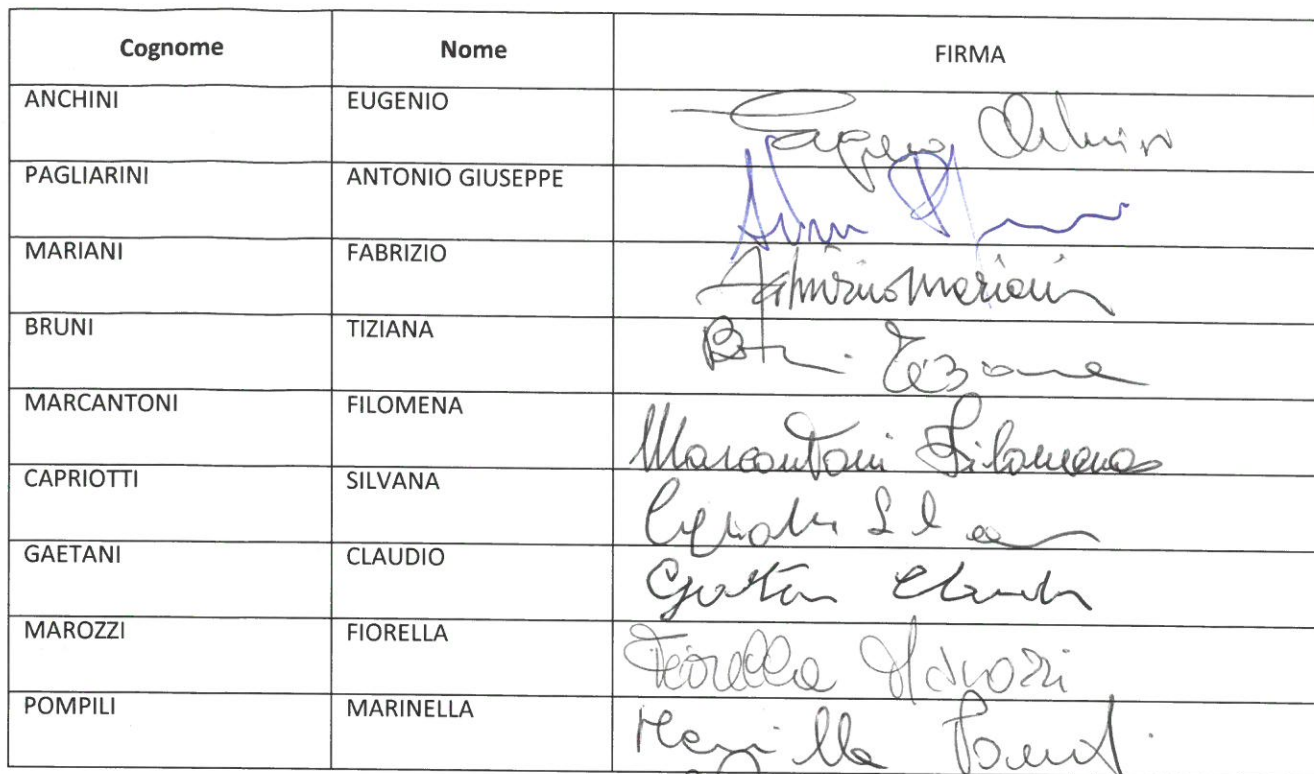 Cognome Nome FIRMA
ANCHINI EUGENIO Eugenio
PAGLIARINI ANTONIO GIUSEPPE
MARIANI FABRIZIO Fabrizio Mariani
BRUNI TIZIANA Bruni Tiziana
MARCANTONI FILOMENA Marcantoni Filomena
CAPRIOTTI SILVANA
GAETANI CLAUDIO Gaetani Claudio
MAROZZI FIORELLA Fiorella Marozzi
POMPILI MARINELLA Marinella